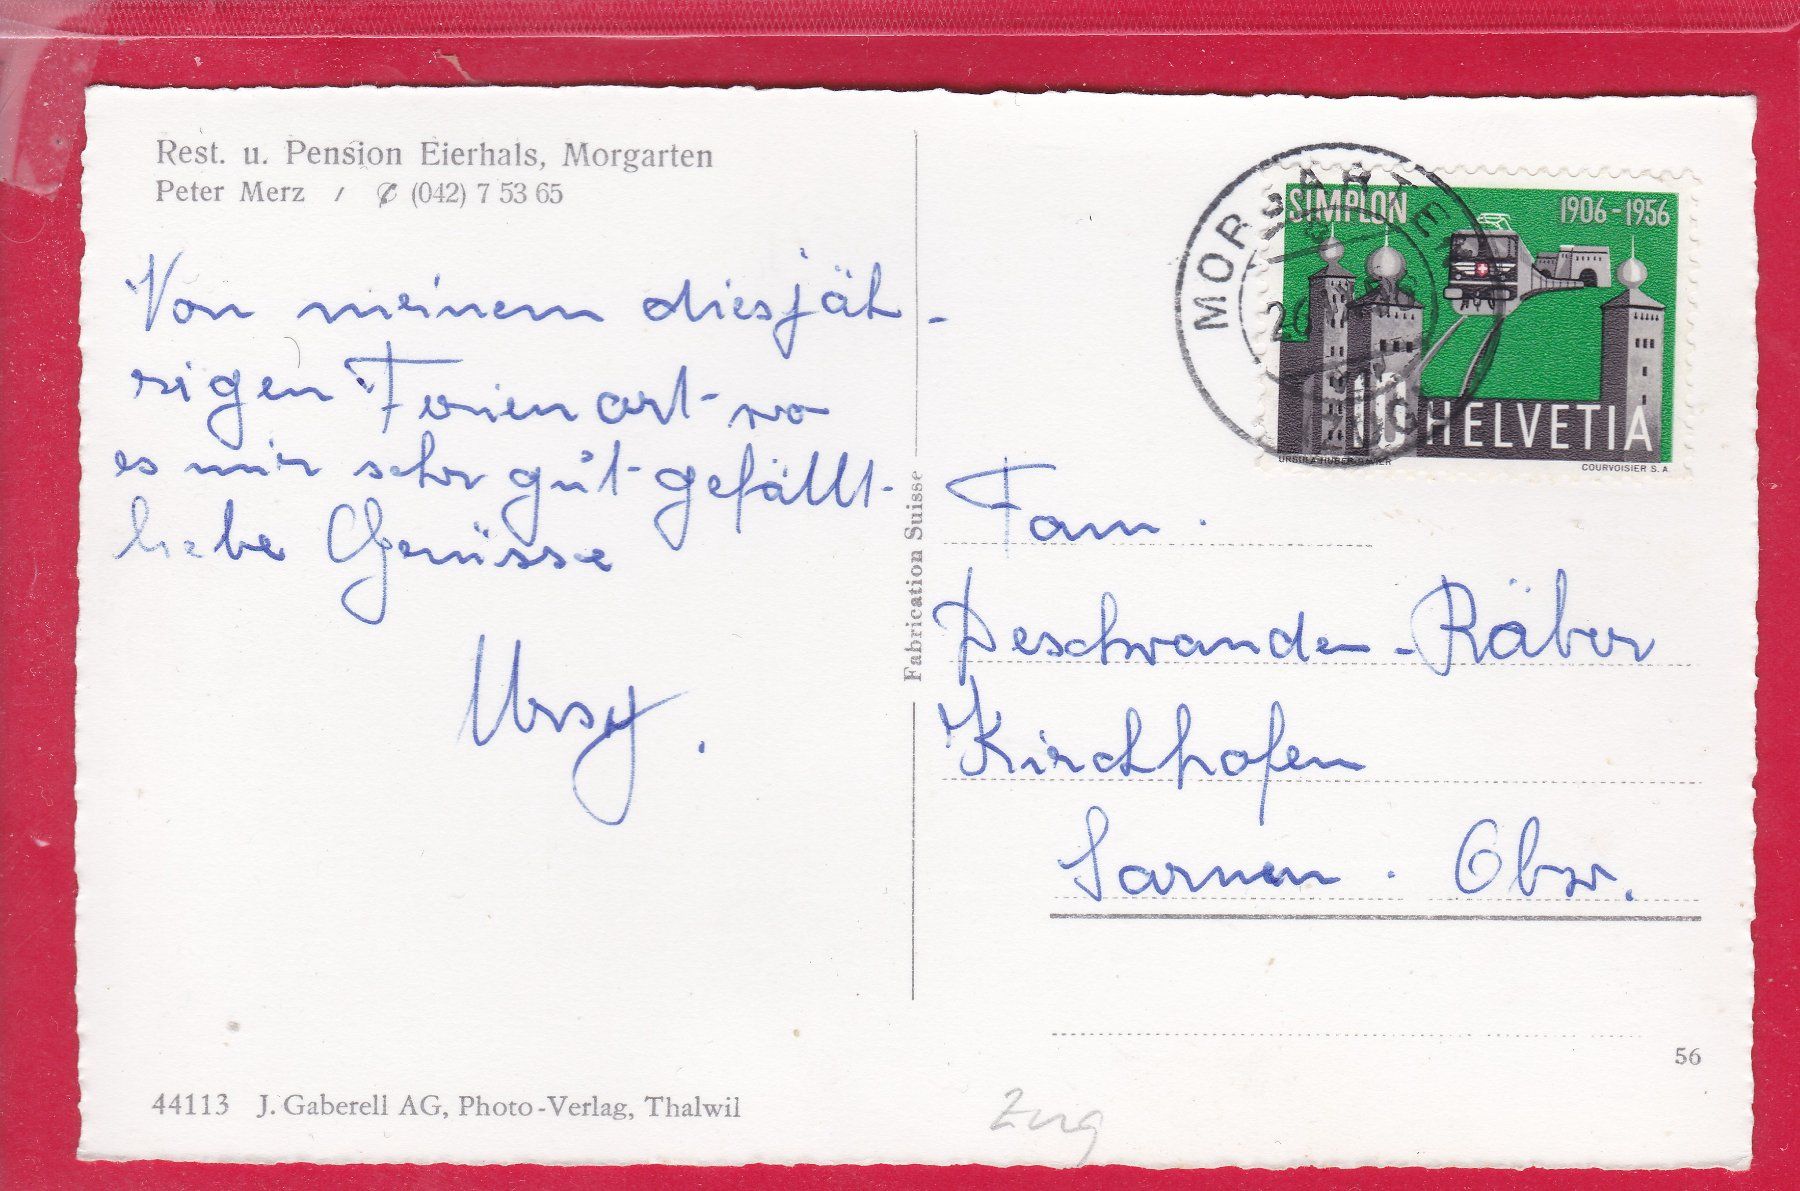 Rest. u. Pension Eierhals, Morgarten
Peter Merz / ✆ (042) 7 53 65
Von meinem diesjäh-
rigen Ferienort - wo
es mir sehr gut gefällt -
liebe Grüsse
Ursy.
Fabrication Suisse
MORGARTEN
26
SIMPLON 1906-1956
10 HELVETIA
URSULA HUBER-BAVIER COURVOISIER S.A.
Fam.
Deschwanden-Räber
Kirchhofen
Sarnen. Obw.
56
44113 J. Gaberell AG, Photo-Verlag, Thalwil
Zug